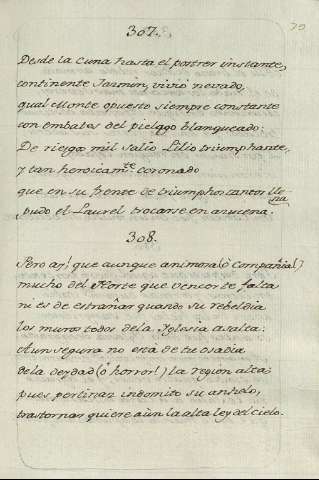 70
307.
Desde la Cuna hasta el postrer instante,
continente Jasmin, vivió nevado,
qual Monte opuesto siempre constante
con embates del pielago blanqueado:
De riesgos mil salio Lilio triumphante,
y tan heroicamte. coronado
que en su frente de triumphos tantos
pudo el Laurel trocarse en azucena.
308.
Pero ay! que aunque animosa (ó Compañia!)
mucho del Norte que vencer te falta
ni es de estrañar quando su rebeldia
los muros todos dela Yglesia asalta:
Aun segura no está de tu osadia
dela deydad (ó horror!) la region alta;
pues pertinaz indomito su anhelo,
trastornar quiere aùn la alta ley del cielo.